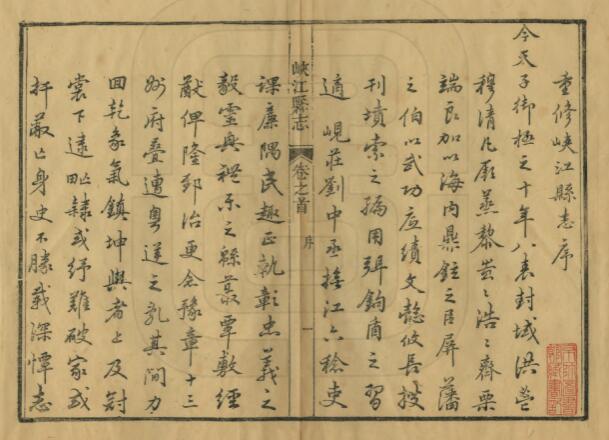 重修峽江縣志序
今天子御極之十年八表封域洪荒
穆清凡厥蒸黎蕓蕓浩浩齊栗
端良加以海內鼎鉉之臣屏藩
之伯以武功底績文懿攸長披
刊墳索之編用弭鉤商之習
適峴莊劉中丞撫江六稔吏
峽江縣志
卷之首
序
一
課廉隅民趣正執彰忠義之
毅靈興禮示之緜蕞覃敷經
猷俾隆郅治更念豫章十三
州府疊遭粵逆之亂其間力
回乾象氣鎮坤輿者上及冠
裳下逮甿隸或紓難破家或
扞敵亡身史不勝載深憚志